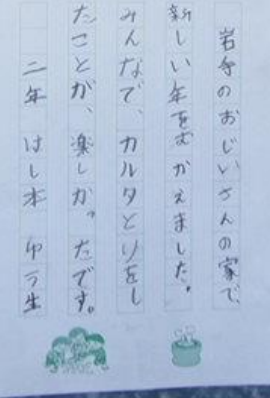 岩手のおじいさんの家で、
新しい年をむかえました。
みんなで、カルタとりをし
たことが、楽しかったです。
二年 はし本